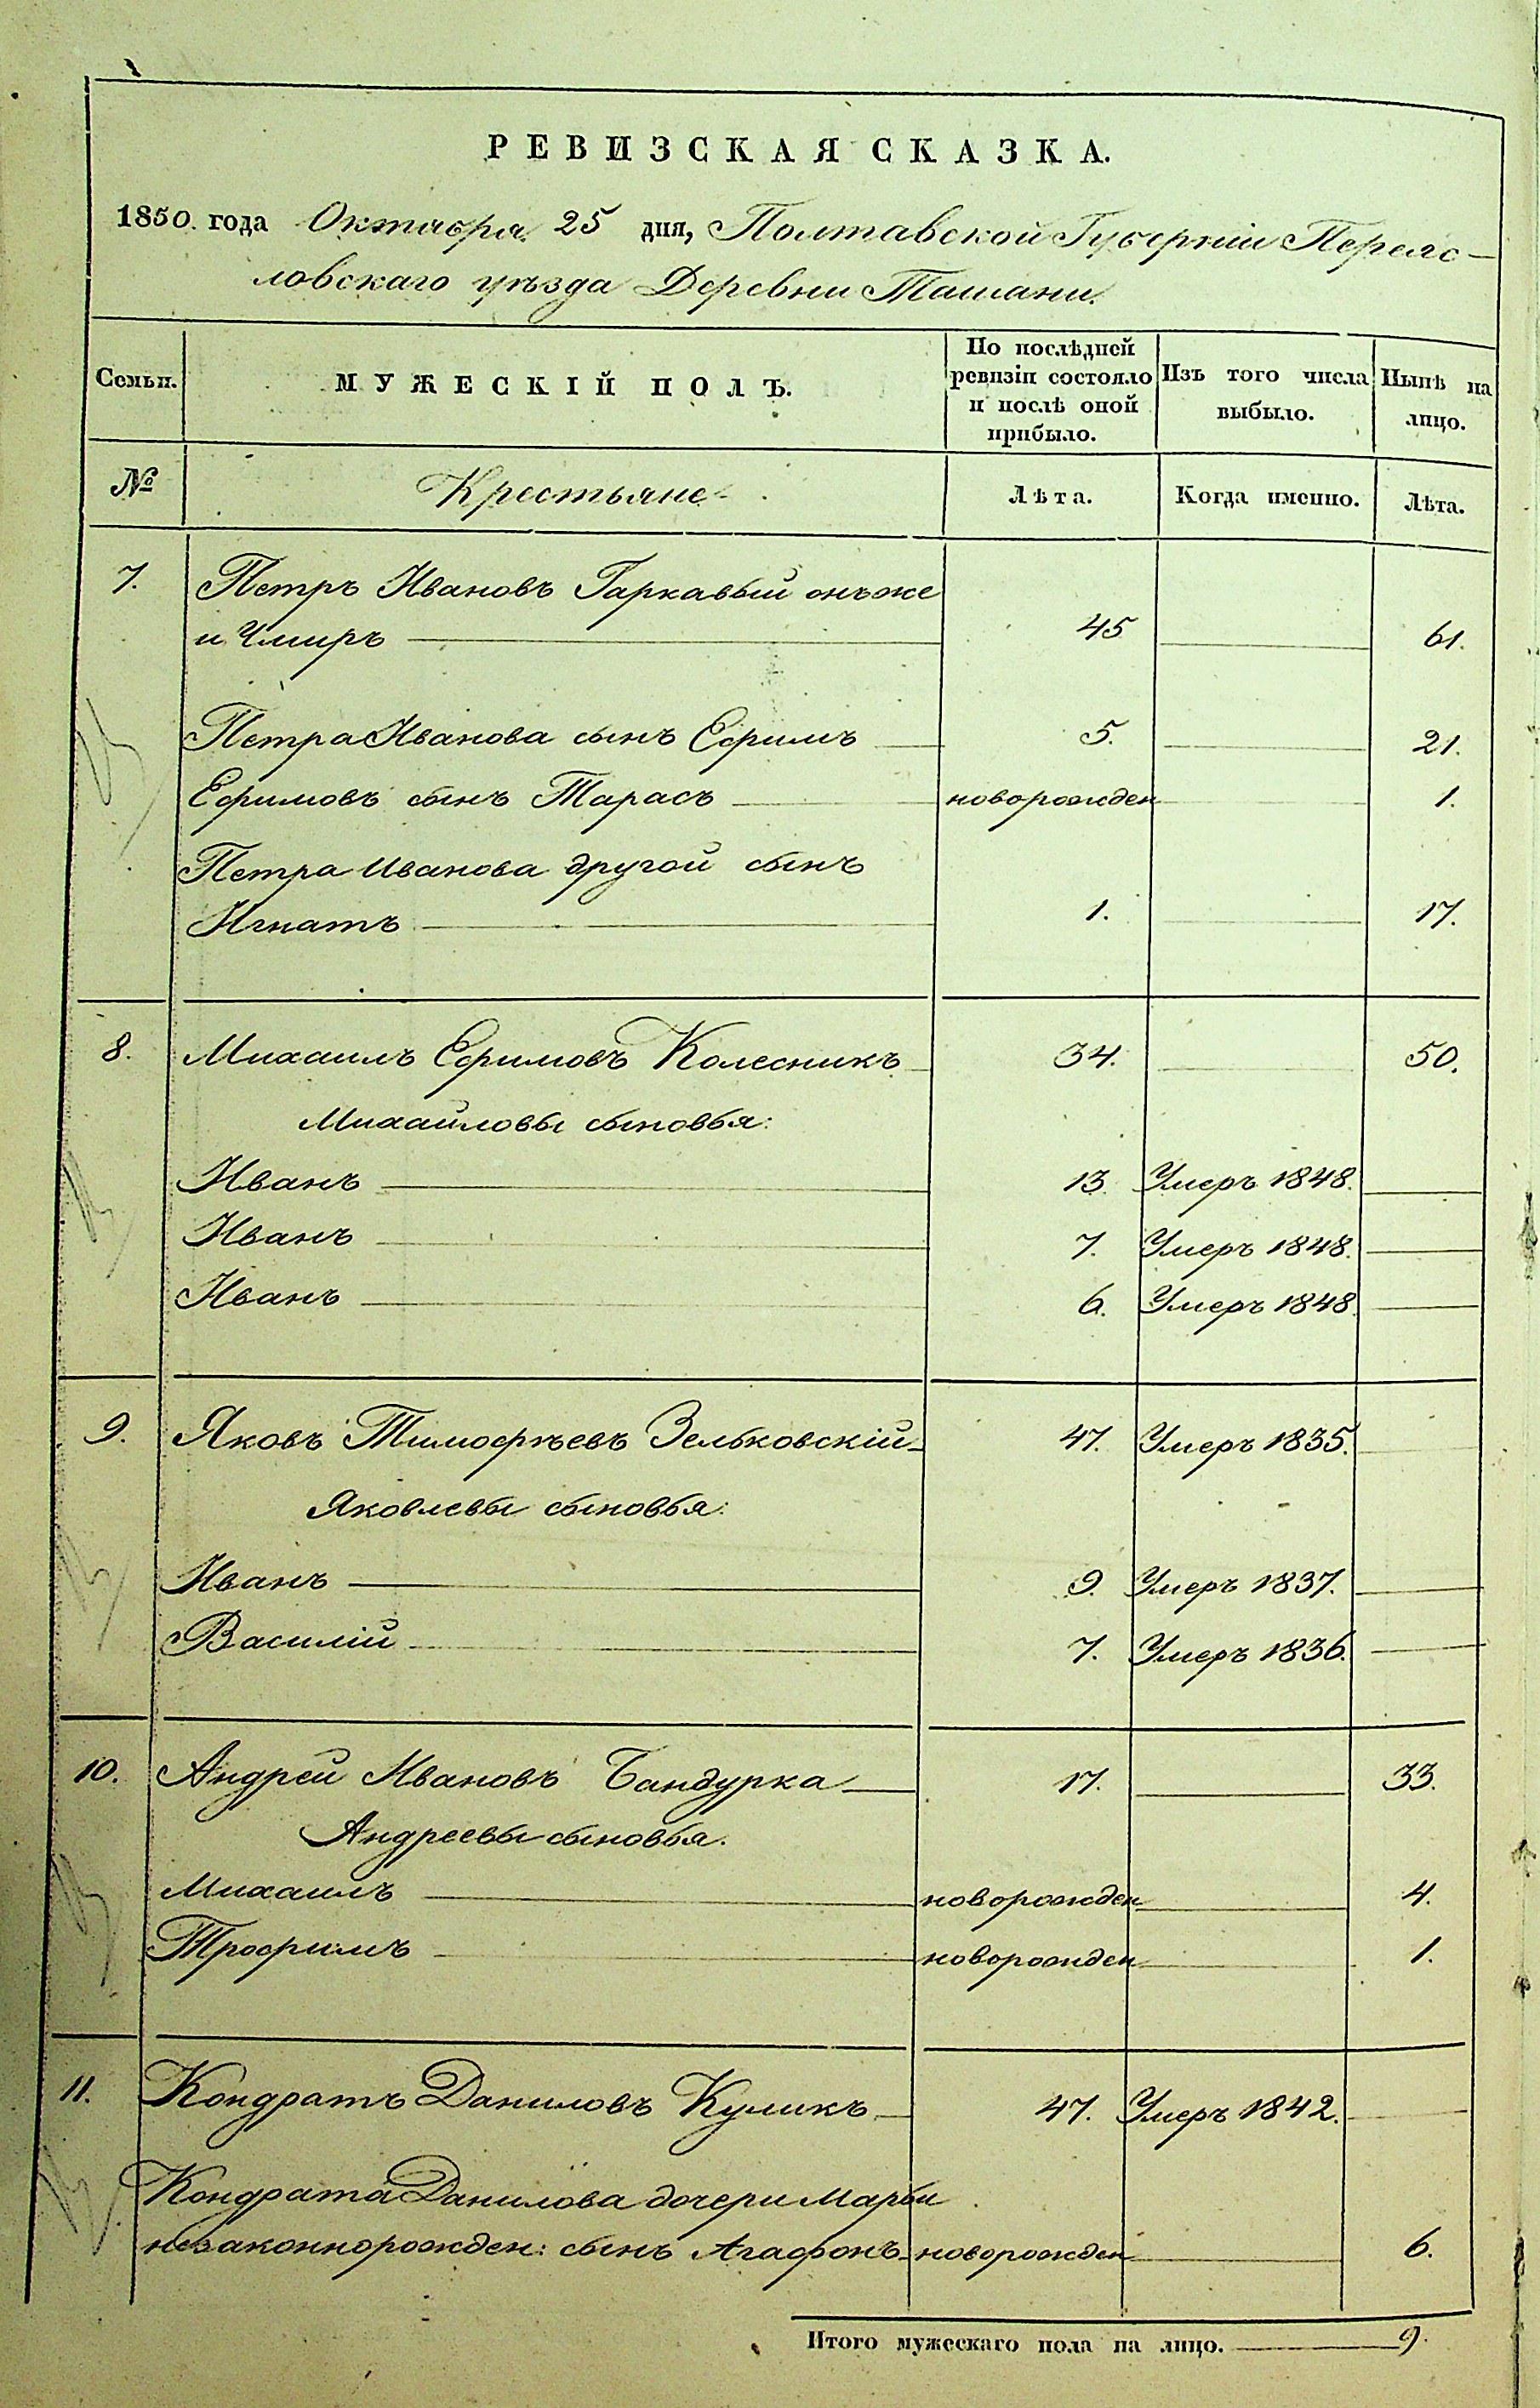 РЕВИЗСКАЯ СКАЗКА.
1850. года Октября 25 дня, Полтавской Губерніи Переяс-
ловскаго уѣзда Деревни Ташани.
Семьи. МУЖЕСКІЙ ПОЛЪ. По послѣдней ревизіи состояло и послѣ оной прибыло. Изъ того числа выбыло. Нынѣ на лицо.
№ Крестьяне Лѣта. Когда именно. Лѣта.
7. Петръ Ивановъ Гаркавый онъ же
и Чмиръ 45 61.
Петра Иванова сынъ Ефимъ 5. 21.
Ефимовъ сынъ Тарасъ новорожден 1.
Петра Иванова другой сынъ
Игнатъ 1. 17.
8. Михаилъ Ефимовъ Колесникъ 34. 50.
Михайловы сыновья:
Иванъ 13. Умеръ 1848.
Иванъ 7. Умеръ 1848.
Иванъ 6. Умеръ 1848.
9. Яковъ Тимофѣевъ Зельковскій 47. Умеръ 1835.
Яковлевы сыновья:
Иванъ 9. Умеръ 1837.
Василій 7. Умеръ 1836.
10. Андрей Ивановъ Бандурка 17. 33.
Андреевы сыновья.
Михаилъ новорожден 4.
Трофимъ новорожден 1.
11. Кондратъ Даниловъ Куликъ 47. Умеръ 1842.
Кондрата Данилова дочери Марьи
незаконнорожден: сынъ Агафонъ новорожден 6.
Итого мужескаго пола на лицо. 9.